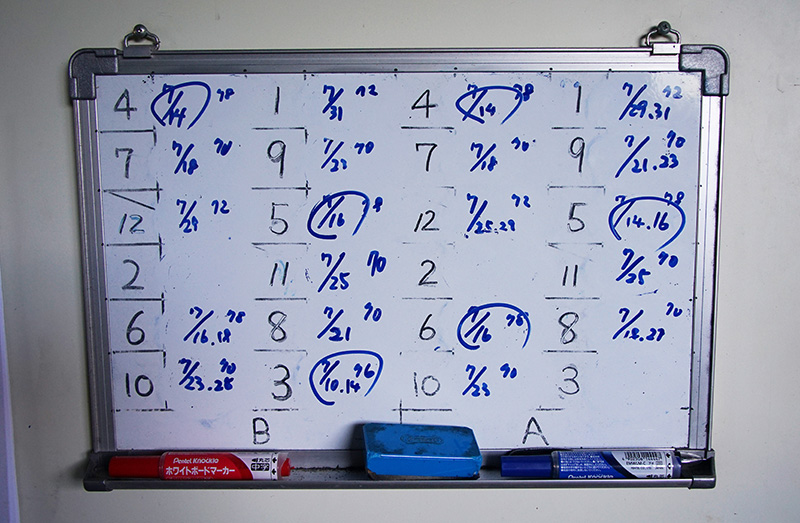 4 7/14 78 1 7/31 72 4 7/14 78 1 7/29.31 72
7 7/18 70 9 7/23 70 7 7/18 70 9 7/21.23 70
12 7/29 72 5 7/16 78 12 7/25.29 72 5 7/14.16 78
2 11 7/25 70 2 11 7/25 70
6 7/16.18 78 8 7/21 70 6 7/16 76 8 7/18.27 70
10 7/23.25 70 3 7/10.14 76 10 7/23 70 3
B A
Pentel Knockle
ホワイトボードマーカー
中字
Pentel Knockle